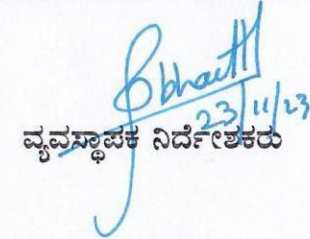 23/11/23
ವ್ಯವಸ್ಥಾಪಕ ನಿರ್ದೇಶಕರು